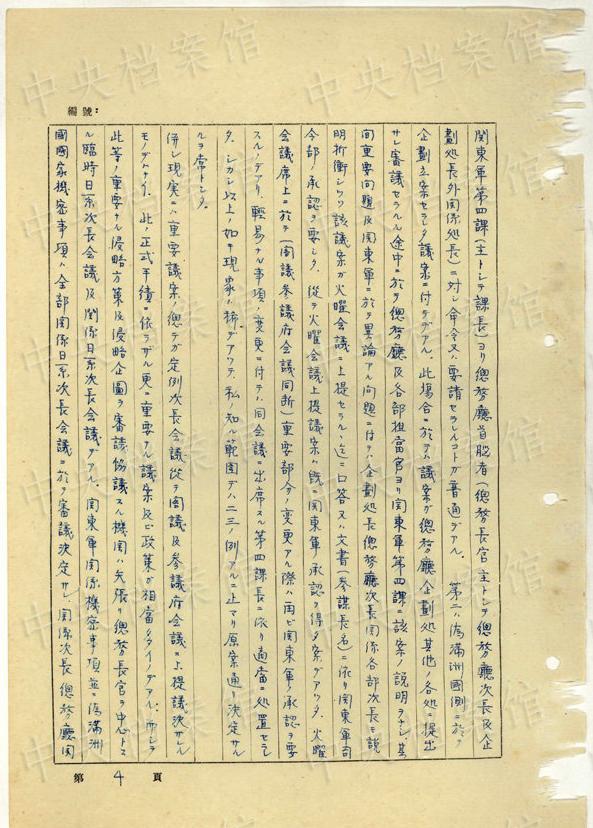 編號:
関東軍第四課(主トシテ課長)ヨリ總務廳首脳者(總務長官主トシテ總務廳次長及企
劃処長外関係処長)ニ対シ命令又ハ要請セラルルコトガ普通デアル。 第二ハ偽満洲國側ニ於テ
企劃立案セラレタ議案ニ付テデアル。此場合ニ於テハ議案ガ總務廳企劃処其他ノ各処ニ提出
サレ審議セラルル途中ニ於テ總務廳及各部担当官ヨリ関東軍第四課ニ該案ノ説明ヲナシ、其
間重要問題及関東軍ニ於テ異論アル問題ニ付テハ企劃処長總務廳次長関係各部次長モ説
明折衝シツツ該議案ガ火曜会議ニ上提セラルル迄ニ口答又ハ文書(参謀長名)ニ依リ関東軍司
令部ノ承認ヲ要シタ。従テ火曜会議上提議案ハ既ニ関東軍ノ承認ヲ得タ案デアツタ。火曜
会議席上ニ於テ(国議参議府会議同断)重要部分ノ変更アル際ハ再ビ関東軍ノ承認ヲ要
スルノデアリ、軽易ナル事項ノ変更ニ付テハ同会議ニ出席スル第四課長ニ依リ適当ニ処置セラレ
タ。シカシ以上ノ如キ現象ハ稀デアツテ、私ノ知ル範囲デハ二三ノ例アルニ止マリ原案通リ決定サル
ルヲ常トシタ。
併シ現実ニハ重要議案ノ總テガ定例次長会議従テ国議及参議府会議ニ上提議決サレル
モノデハナイ。此ノ正式手続ニ依ラザル更ニ重要ナル議案及ビ政策ガ相当多イノデアル。而シテ
此等ノ重要ナル侵略方策及侵略企圖ヲ審議協議スル機関ハ矢張リ總務長官ヲ中心トス
ル臨時日系次長会議及関係日系次長会議デアル。関東軍関係機密事項並ニ偽満洲
國國家機密事項ハ全部関係日系次長会議ニ於テ審議決定サレ、関係次長總務廳関
第 4 頁
中央档案馆